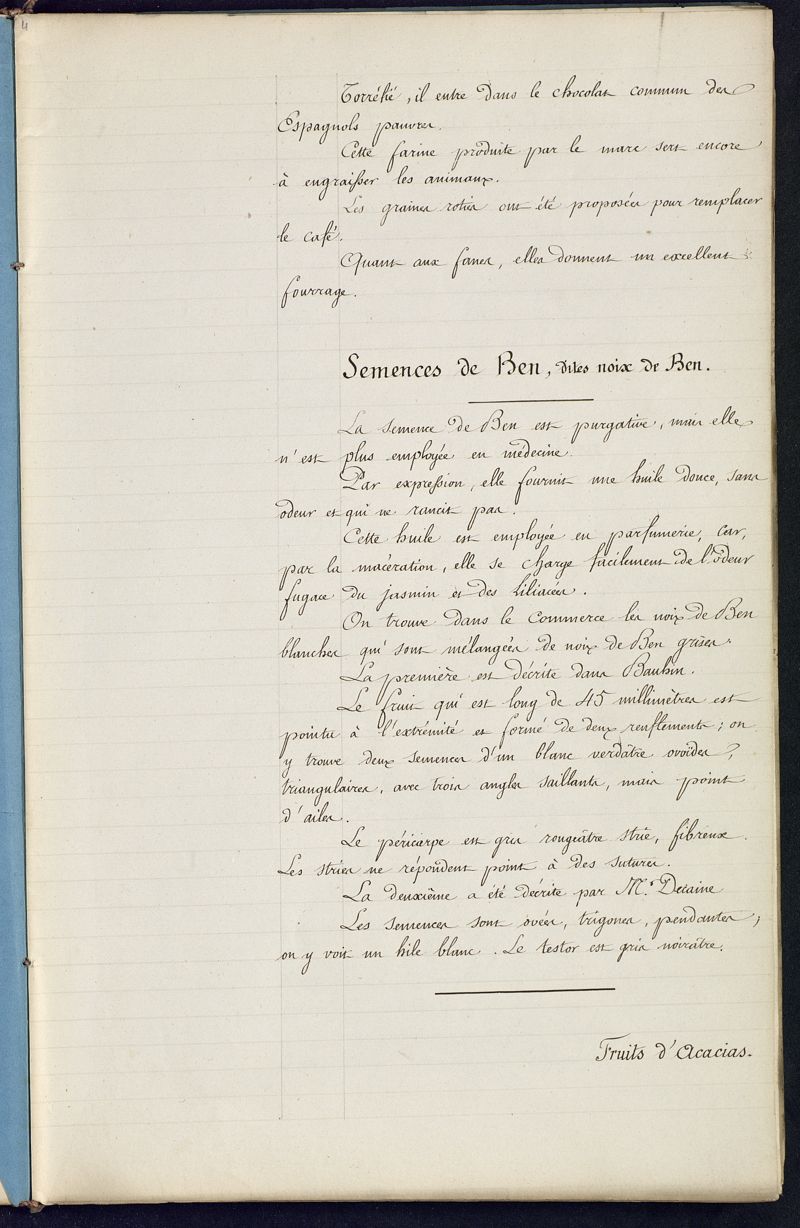 4
Torréfié, il entre dans le chocolat commun des
Espagnols pauvres.
Cette farine produite par le marc sert encore
à engraisser les animaux.
Les graines roties ont été proposées pour remplacer
le café.
Quant aux fanes, elles donnent un excellent
fourrage.
Semences de Ben, dites noix de Ben.
La semence de Ben est purgative, mais elle
n'est plus employée en médecine.
Par expression, elle fournit une huile douce, sans
odeur et qui ne rancit pas.
Cette huile est employée en parfumerie, car,
par la macération, elle se charge facilement de l'odeur
fugace du jasmin et des liliacées.
On trouve dans le Commerce les noix de Ben
blanches qui sont mélangées de noix de Ben grises.
La première est décrite dans Bauhin.
Le fruit qui est long de 45 millimètres est
pointu à l'extrémité et formé de deux renflements; on
y trouve deux semences d'un blanc verdâtre ovoïdes,
triangulaires, avec trois angles saillants, mais point
d'ailes.
Le péricarpe est gris rougeâtre strié, fibreux.
Les stries ne répondent point à des sutures.
La deuxième a été décrite par Mr. Decaine
Les semences sont ovées, trigones, pendantes;
on y voit un hile blanc. Le testor est gris noirâtre.
Fruits d'Acacias.